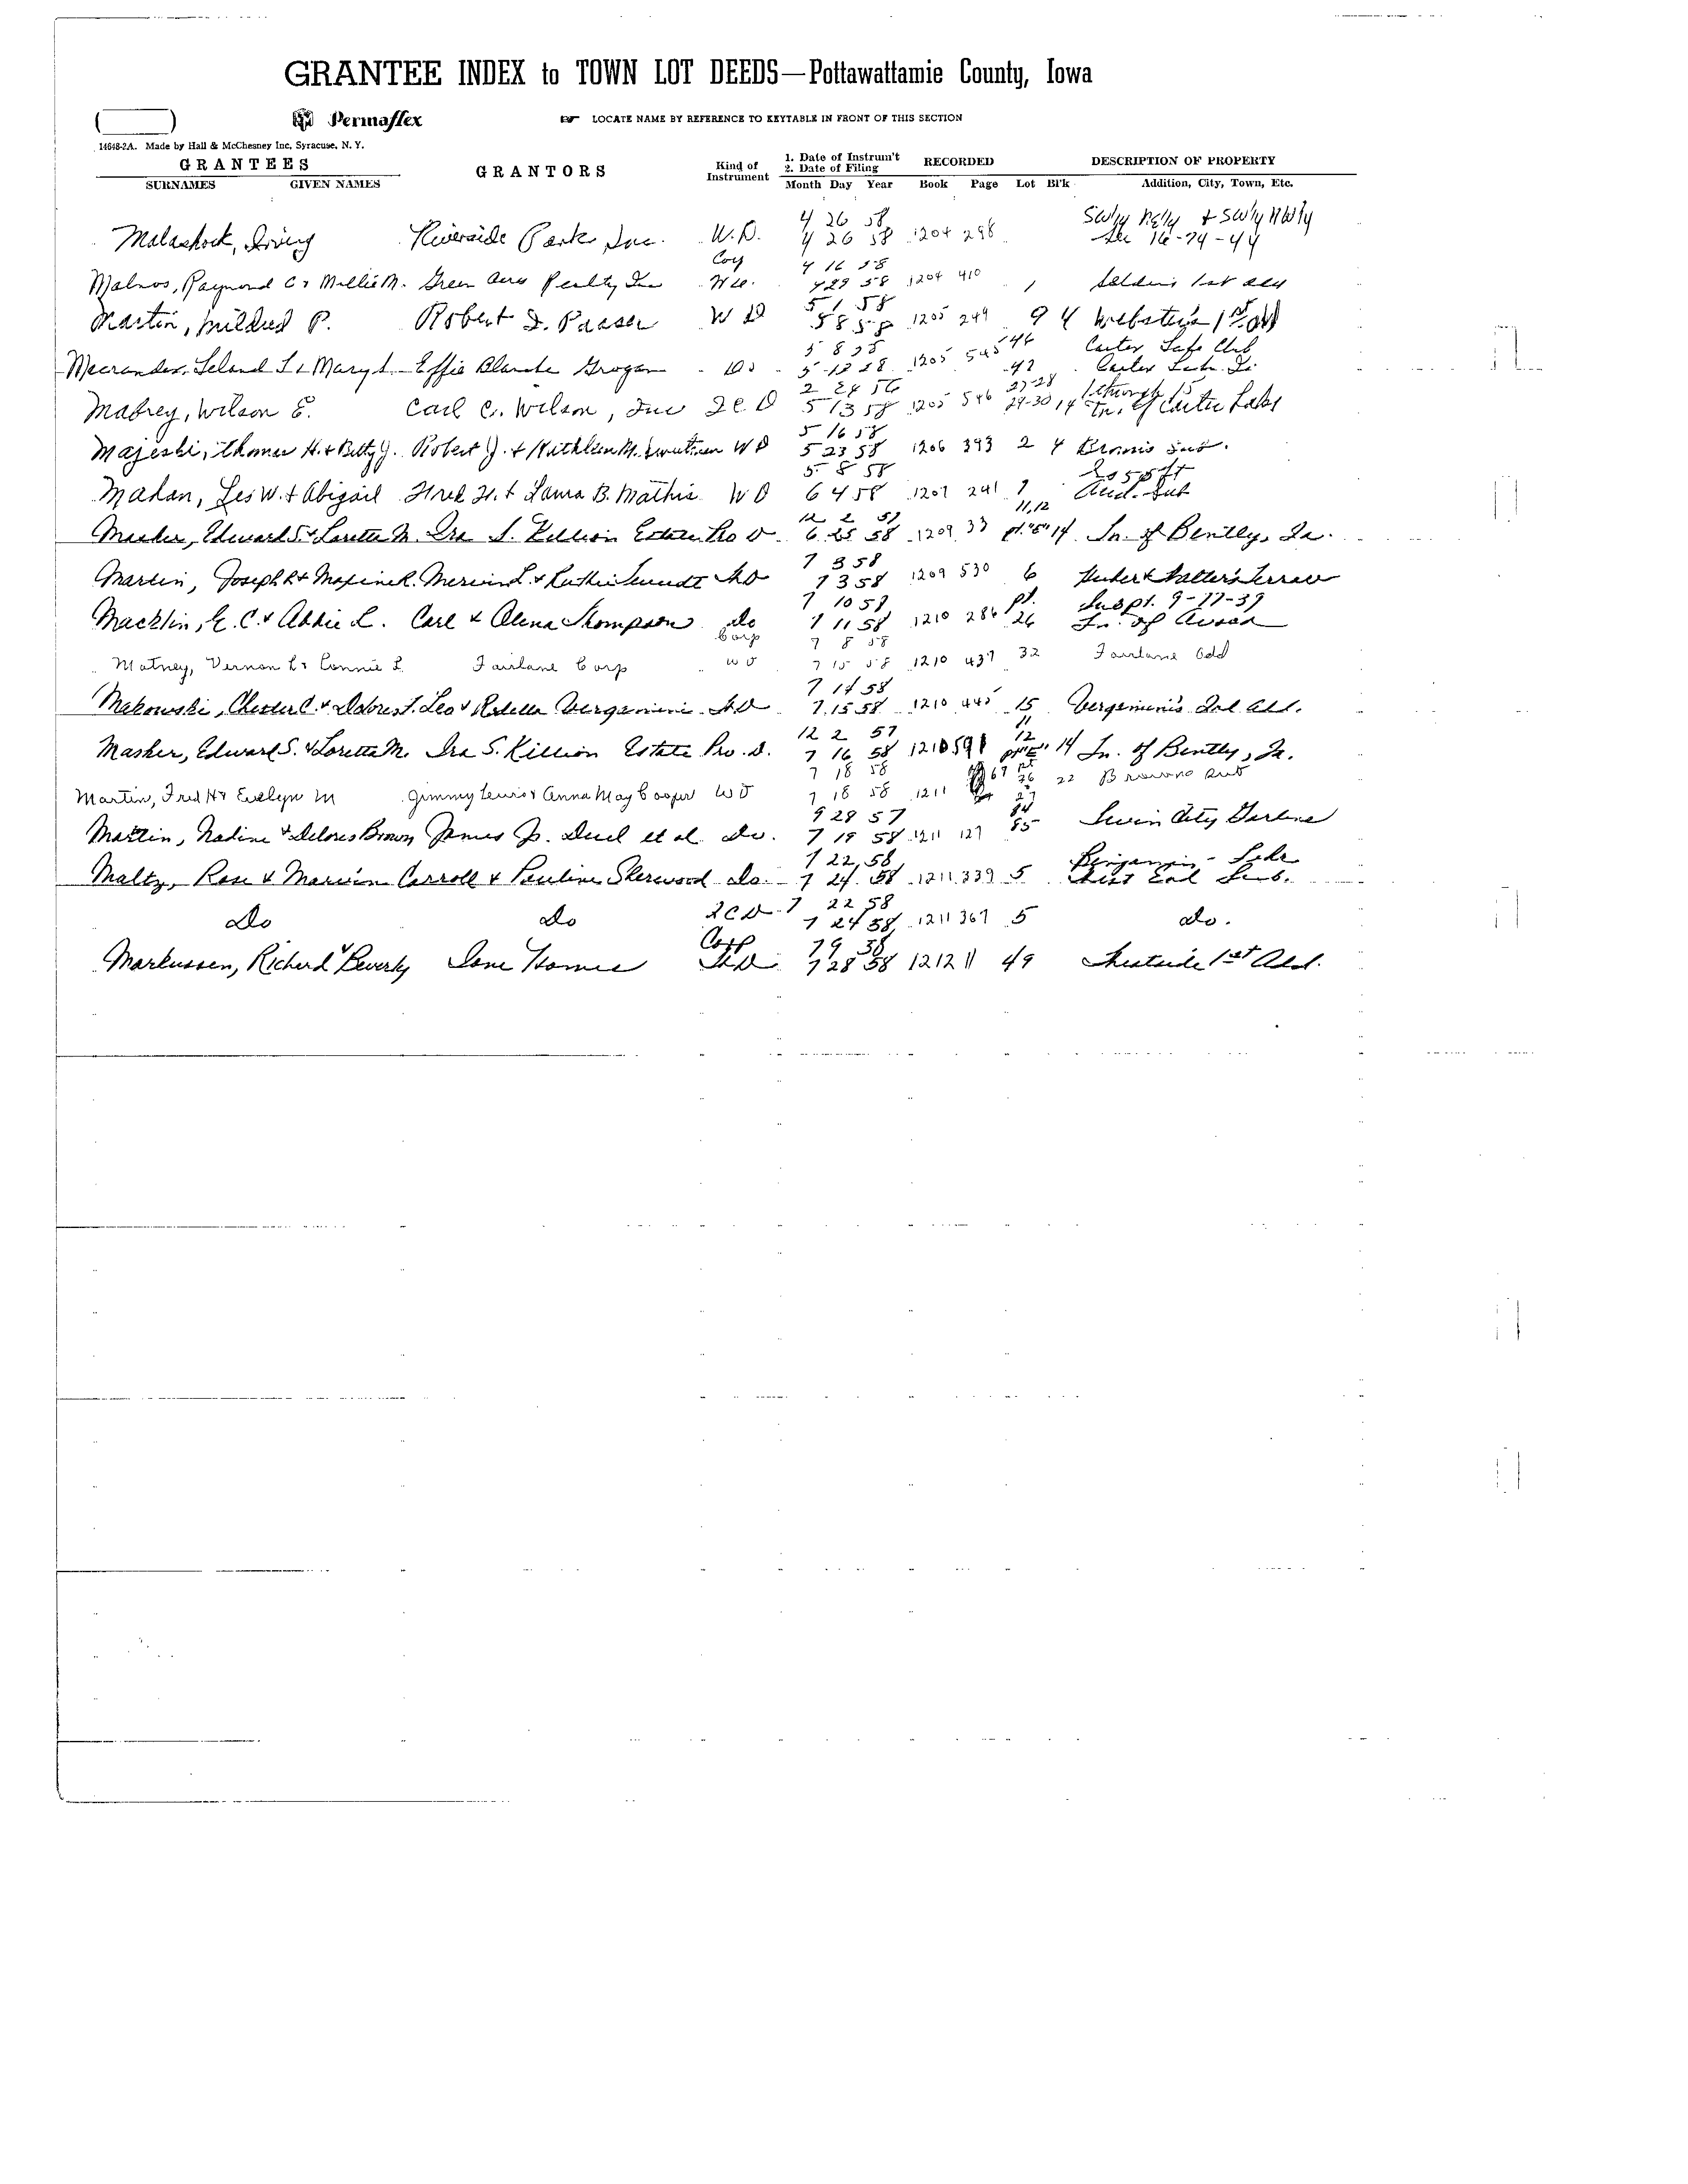 GRANTEE INDEX to TOWN LOT DEEDS—Pottawattamie County, Iowa
Permaflex LOCATE NAME BY REFERENCE TO KEYTABLE IN FRONT OF THIS SECTION
14648-2A. Made by Hall & McChesney Inc. Syracuse, N. Y.
GRANTEES GRANTORS Kind of Instrument 1. Date of Instrum't 2. Date of Filing RECORDED DESCRIPTION OF PROPERTY
SURNAMES GIVEN NAMES Month Day Year Book Page Lot Bl'k Addition, City, Town, Etc.
4 26 58
Malashock, Irving Riverside Park Inc. W.D. 4 26 58 1204 298 Sec 16-74-44
4 16 58
Raymond C & Millie M. Green Acres Realty 4 29 58 1204 410 1 1st Add
5 1 58
Martin, Mildred P. Robert D. Passer W D 5 8 58 1205 249 9 4 Webster's 1st Add
5 8 58 46 Carter Club
Leland & Mary Effie Blanche Grogan Do 1205 545 42 Carter
2 24 56 27-28
Mabrey, Wilson E. Carl C. Wilson, Jr. 2 C D 5 13 58 1205 546 29-30 14 Tn. of Carter Lake
5 16 58
Majeski, Thomas H. & Betty J. Robert J. & Kathleen M. W D 5 23 58 1206 393 2 4 Sub.
5 8 58
Mahan, Les W. & Abigail Fred H. & Laura B. Mathis W D 6 4 58 1207 241 Aud. Sub
12 2 57 11,12
Masker, Edward S. & Loretta M. Ira S. Killion Estate Pro D. 6 25 58 1209 33 pt. "E" 14 Tn. of Bently, Ia.
7 3 58
Martin, Joseph R & Maxine R. 7 3 58 1209 530 6 Terrace
7 10 58 pt. 9-77-39
Macklin, E. C. & Abbie L. Carl & Alena Thompson Do 7 11 58 1210 286 26 Tn. of Avoca
Corp 7 8 58
Matney, Vernon L & Connie L Fairlane Corp W D 7 15 58 1210 437 32 Fairlane Add
7 14 58
Makowski, Chester C. & Delores J. Leo & Bergamini 7 15 58 1210 445 15 Bergamini's 2nd Add.
12 2 57 11 12
Masker, Edward S. & Loretta M. Ira S. Killion Estate Pro. D. 7 16 58 1210 591 pt "E" 14 Tn. of Bently, Ia.
7 18 58 67 pt 26 22 Browns Sub
Martin, Fred H & Evelyn M Jimmy Lewis & Anna May Cooper W D 7 18 58 1211 27
9 28 57 84
Martin, Nadine & Delores Brown James P. Duel et al Do. 7 19 58 1211 127 85 Twin City Gardens
7 22 58 Benjamin
Maltz, Rose & Marvin Carroll & Pauline Sherwood Do 7 24 58 1211 339 5 Sub.
2CD 7 22 58
Do Do 7 24 58 1211 367 5 Do.
Corp
Markussen, Richard & Beverly Home W.D. 7 28 58 1212 11 49 1st Add.